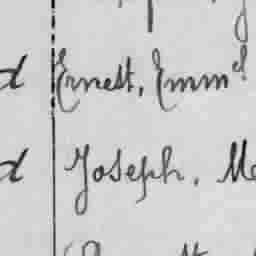 d Ernest, Emm^el
d Joseph, M